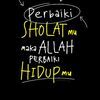 Perbaiki
SHOLATmu
maka ALLAH
PERBAIKI
HIDUPmu